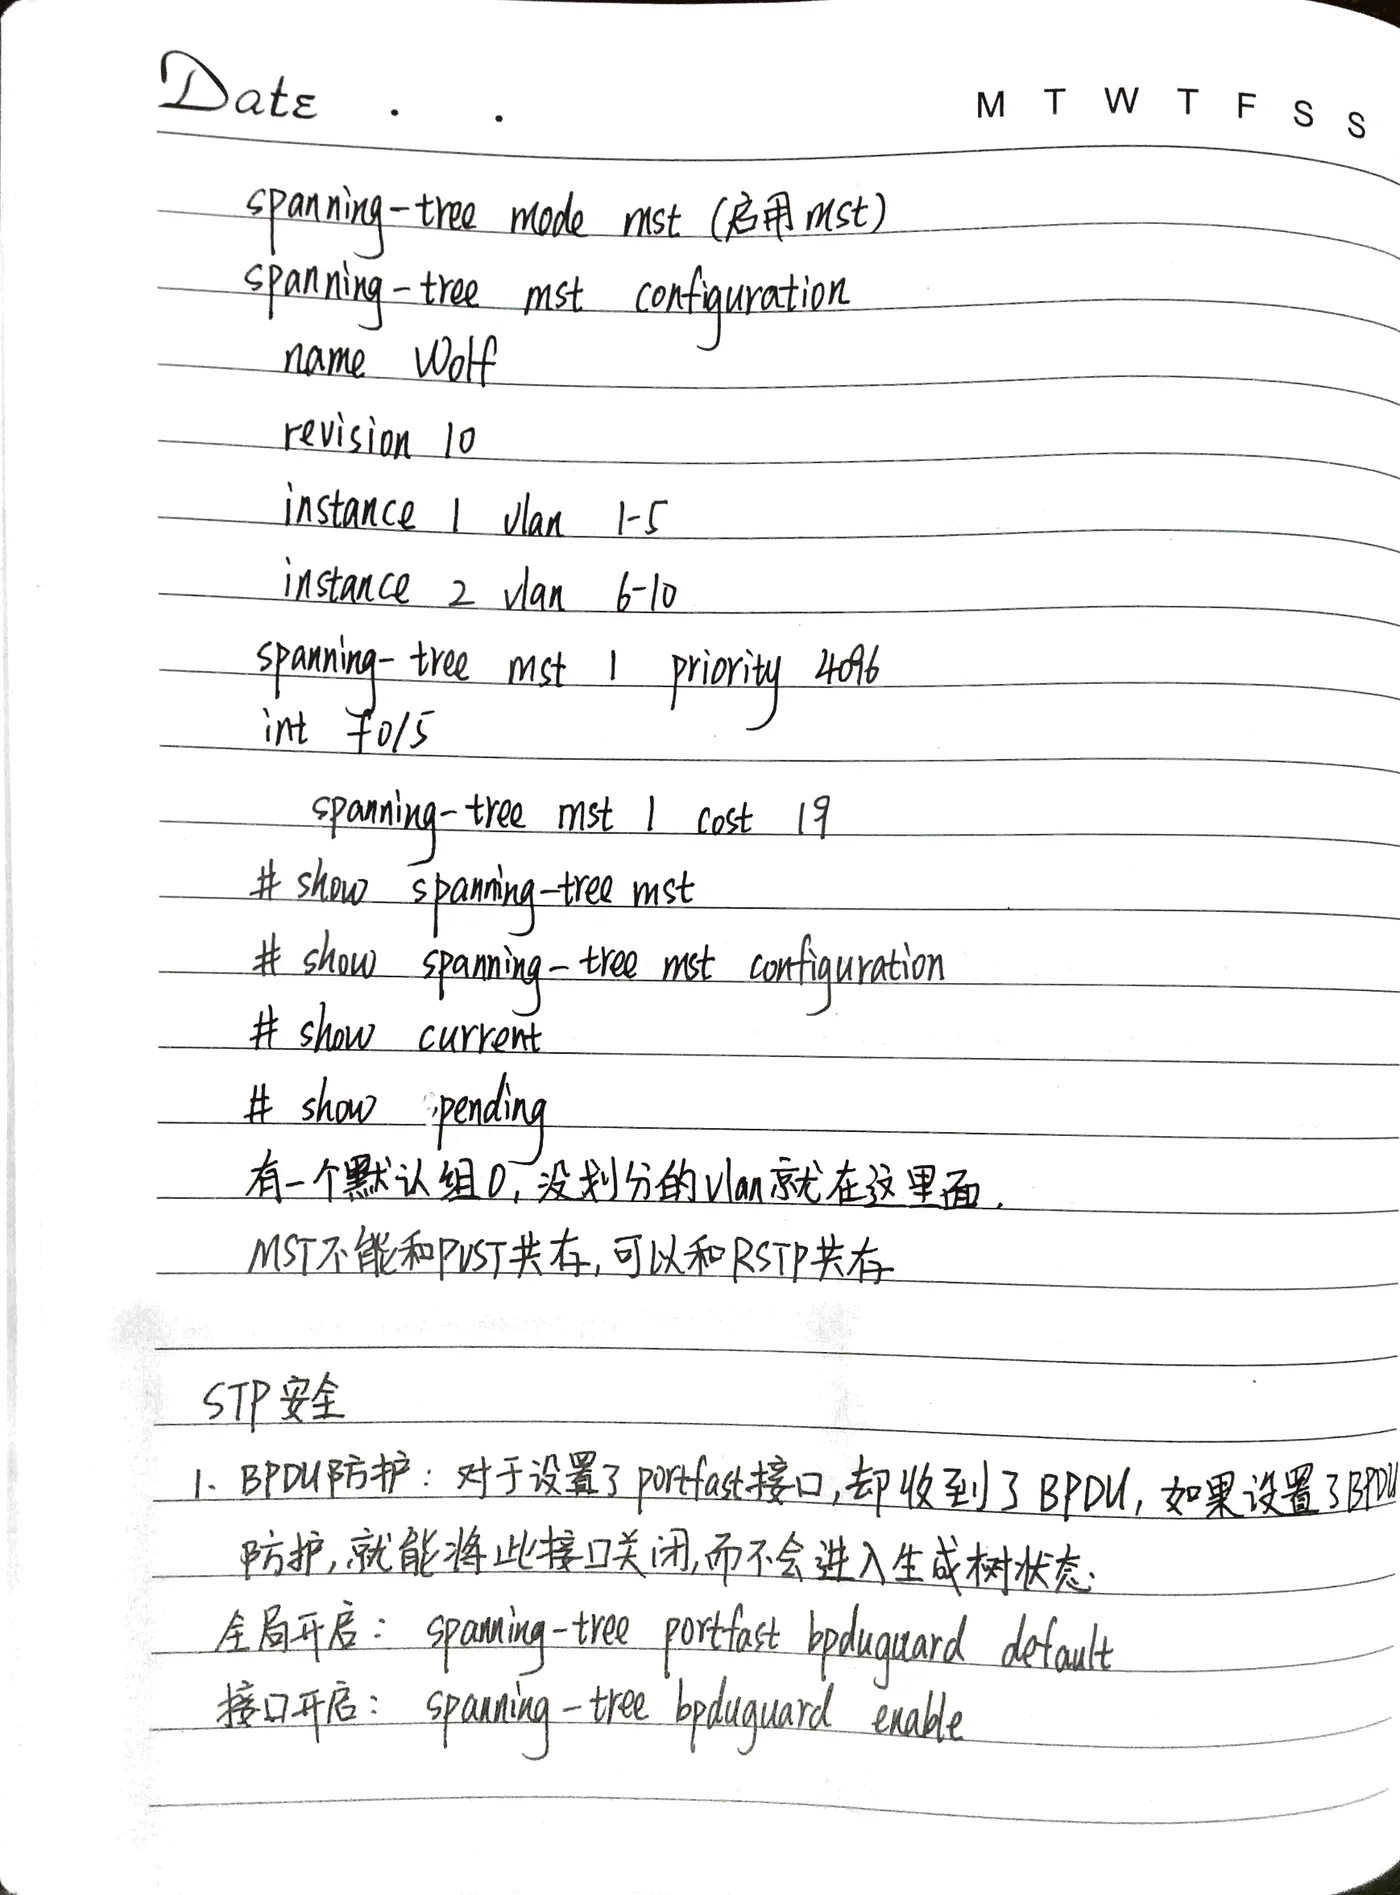 Date . .
M T W T F S S
spanning-tree mode mst (启用mst)
spanning-tree mst configuration
name Wolf
revision 10
instance 1 vlan 1-5
instance 2 vlan 6-10
spanning-tree mst 1 priority 4096
int f0/5
spanning-tree mst 1 cost 19
# show spanning-tree mst
# show spanning-tree mst configuration
# show current
# show pending
有一个默认组0,没划分的vlan就在这里面.
MST不能和PVST共存,可以和RSTP共存
STP安全
1. BPDU防护: 对于设置了portfast接口,却收到了BPDU, 如果设置了BPDU
防护,就能将此接口关闭,而不会进入生成树状态.
全局开启: spanning-tree portfast bpduguard default
接口开启: spanning-tree bpduguard enable